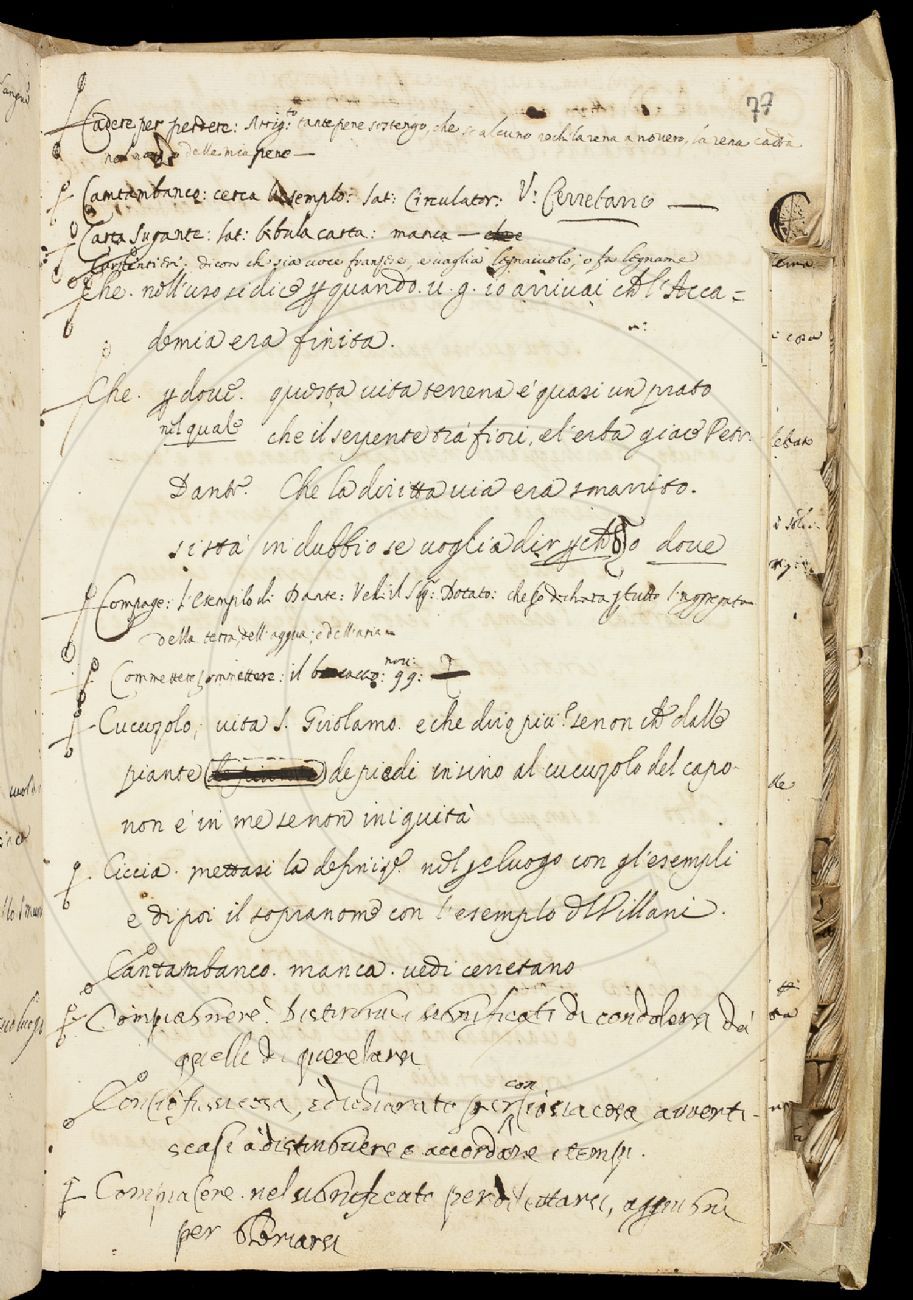 77
Cadere per perdere: Arrig.to tante pene sostengo, che se alcuno la rena a novero, la rena cadrà
delle mie pene —
Camtambanco: cerca l'esemplo: lat: Circulator: V: Cerretano —
Carta Sugante: lat: bibula carta: manca —
Carpentieri: dicon che sia voce franzese, e vaglia legnaiuolo, o fa legname
Che. nell'uso si dice p quando. v. g. io arrivai che l'Acca=
demia era finita.
Che. p dove. questa vita terrena è quasi un prato
nel quale che il serpente tra' fiori, e l'erba giace Petr
Dante. Che la diritta via era smarrita.
si stà in dubbio se voglia dir o dove
Compage: l'esemplo di Dante: Vedi il Sig: Dotato: che tutto l'aggregato
della terra, dell'aqqua, e dell'aria —
Commettere: il bocacco: nov: 99:
Cucuzolo, vita S. Girolamo. e che dirò più? se non che dalle
piante de piedi insino al cucuzolo del capo
non è in me se non iniquità
Ciccia. mettasi la definize. nel luogo con gl'esempli
e di poi il sopranome con l'esemplo del Villani.
Cantambanco. manca. vedi cerretano
Compiagnere. Distinguer i significati di condolersi da
quelli di querelarsi
Conciò fussecosa, è dichiarato per conciosiacosa avverti-
scasi à distinguere e accordare i tempi.
Compiacere. nel significato per dilettarsi, aggiugni
per gloriarsi